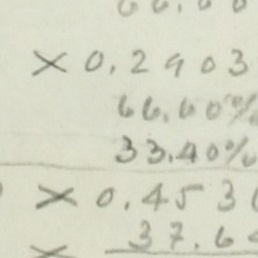 66.60
× 0.2903
66.60%
33.40%
× 0.453
37.6
×